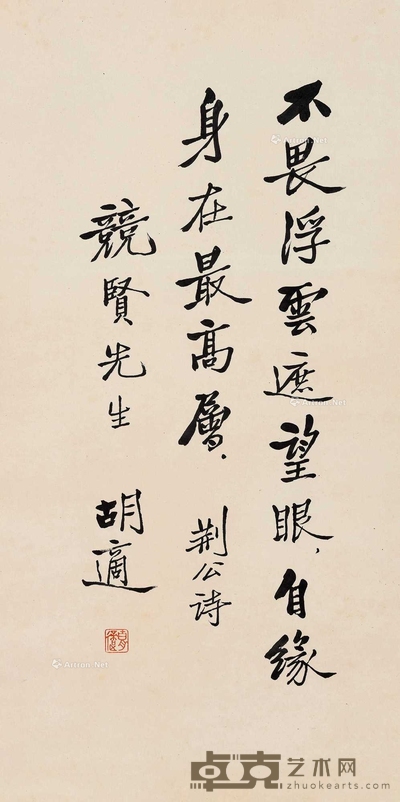 不畏浮雲遮望眼，自缘
身在最高層．荆公诗
競賢先生
胡適
Artron.Net
卓克艺术网
zhuokearts.com